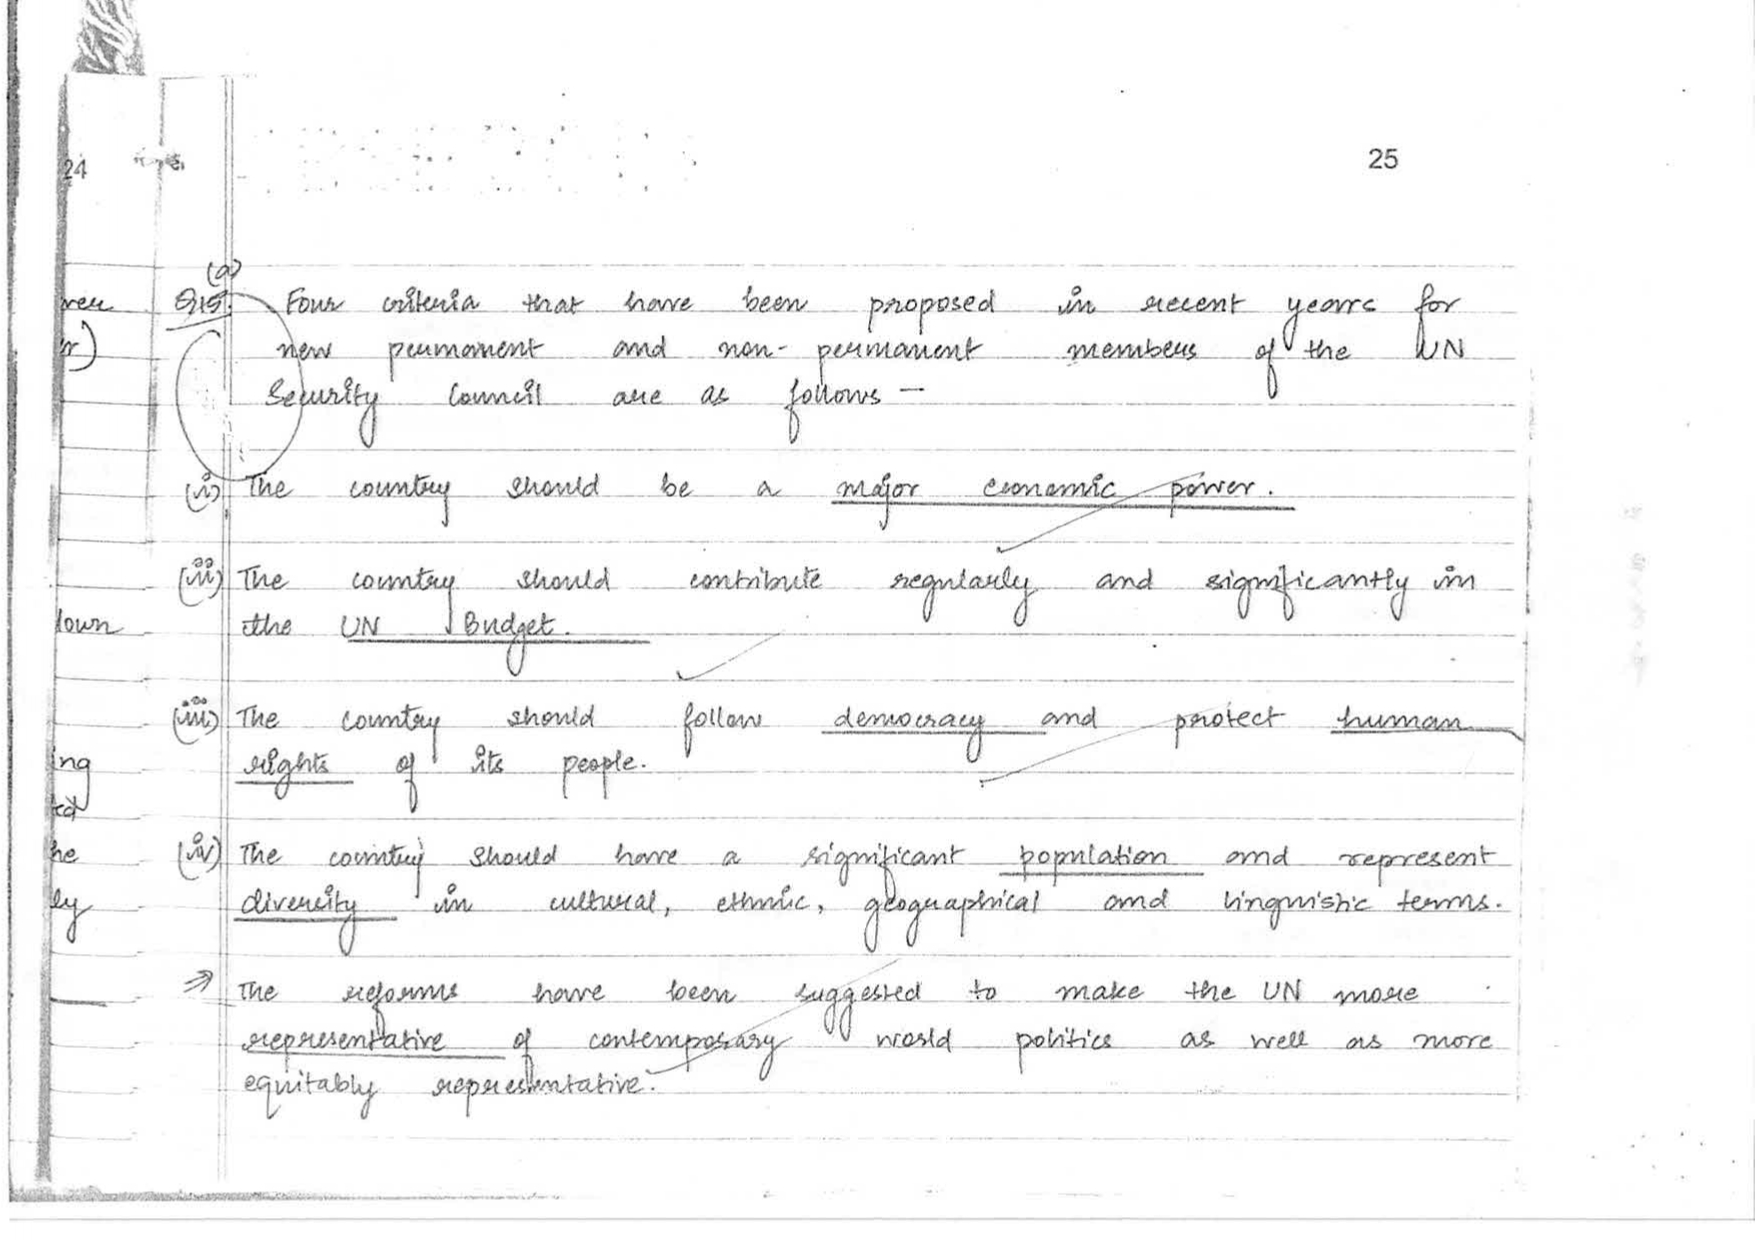 24
25
(a)
Q15. Four criteria that have been proposed in recent years for
new permanent and non-permanent members of the UN
Security Council are as follows —
(i) The country should be a major economic power.
(ii) The country should contribute regularly and significantly in
the UN Budget.
(iii) The country should follow democracy and protect human
rights of its people.
(iv) The country should have a significant population and represent
diversity in cultural, ethnic, geographical and linguistic terms.
⇒ The reforms have been suggested to make the UN more
representative of contemporary world politics as well as more
equitably representative.
lown
ing
he
ly